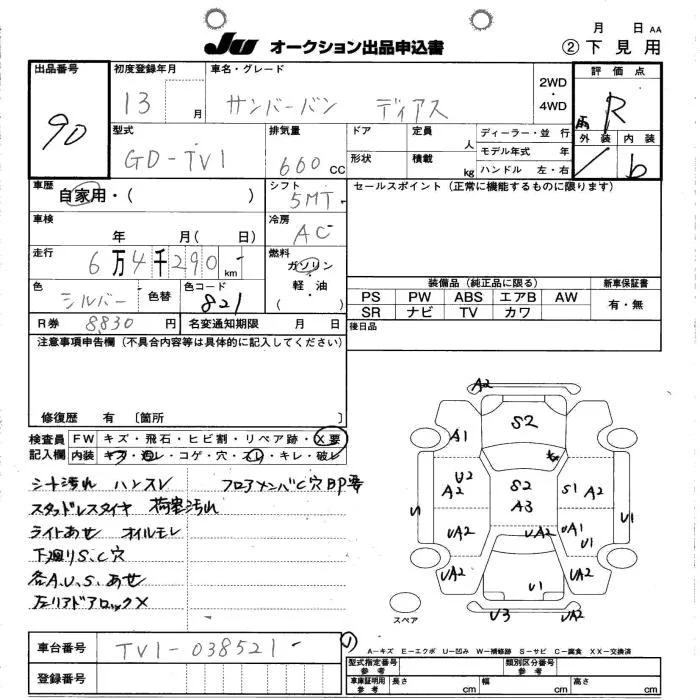 月 日 AA
JU オークション出品申込書 ② 下見用
出品番号 90
初度登録年月 13 月
車名・グレード サンバーバン ディアス
2WD・4WD
評価点 R
外装 内装 b
型式 GD-TV1
排気量 660 cc
ドア 定員 人
形状 積載 kg
ディーラー・並行
モデル年式 年
ハンドル 左・右
車歴 自家用・( )
シフト 5MT
セールスポイント(正常に機能するものに限ります)
車検 年 月( 日)
冷房 AC
走行 6万4千290 km
燃料 ガソリン・軽油 ( )
色 シルバー 色替 色コード 821
装備品(純正品に限る) 新車保証書
PS PW ABS エアB AW 有・無
SR ナビ TV カワ
R券 8830 円 名変通知期限 月 日
後日品
注意事項申告欄(不具合内容等は具体的に記入してください)
修復歴 有 [箇所 ]
検査員記入欄
FW キズ・飛石・ヒビ割・リペア跡・X要
内装 キズ・汚レ・コゲ・穴・スレ・キレ・破レ
シート汚れ ハンスレ フロアメンバC穴 EP要
スタッドレスタイヤ 荷室汚れ
ライトあせ オイルモレ
下廻りS、C穴
各A、U、S、あせ
左リアドアロックX
A2
S2
A1
U2 A2 S2 A3 S1 A2
U1 UA2 UA2 UA1 U1 U1
UA2 U1 UA2
U3 UA2
スペア
車台番号 TV1-038521
登録番号
A-キズ E-エクボ U-凹み W-補修跡 S-サビ C-腐食 XX-交換済
型式指定番号 参考 類別区分番号 参考
車庫証明用 参考 長さ cm 幅 cm 高さ cm